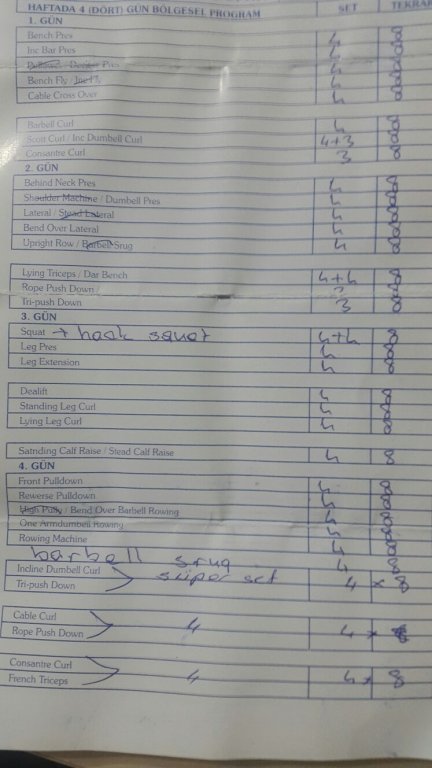 HAFTADA 4 (DÖRT) GÜN BÖLGESEL PROGRAM SET TEKRAR
1. GÜN
Bench Pres 4 8
Inc Bar Pres 4 8
Pres 4 8
Bench Fly / Inc Fly 4 8
Cable Cross Over 4 8
Barbell Curl 4 8
Scott Curl / Inc Dumbell Curl 4+3 8
Consantre Curl 3 8
2. GÜN
Behind Neck Pres 4 8
Shoulder Machine / Dumbell Pres 4 8
Lateral / Stead Lateral 4 8
Bend Over Lateral 4 8
Upright Row / Barbell Srug 4 8
Lying Triceps / Dar Bench 4+4 8
Rope Push Down 3 8
Tri-push Down 3 8
3. GÜN
Squat + hack squat 4+4 8
Leg Pres 4 8
Leg Extension 4 8
Dealift 4 8
Standing Leg Curl 4 8
Lying Leg Curl 4 8
Satnding Calf Raise / Stead Calf Raise 4 8
4. GÜN
Front Pulldown 4 8
Rewerse Pulldown 4 8
High Pully / Bend Over Barbell Rowing 4 8
One Armdumbell Rowing 4 8
Rowing Machine 4 8
barbell srug 4 8
Incline Dumbell Curl süper set
Tri-push Down 4 x 8
Cable Curl
Rope Push Down 4 4 x 8
Consantre Curl
French Triceps 4 4 x 8